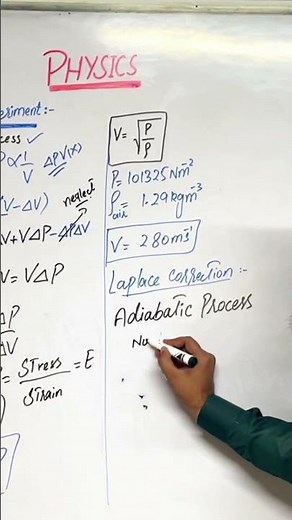 PHYSICS
eriment:-
cess ✓
P∝1/V ΔPV(x)
V-ΔV) neglect
V+VΔP-ΔPΔV
V=VΔP
ΔP
ΔV
= STress/STrain = E
V=√(P/ρ)
P=101325Nm⁻²
ρair=1.29kgm⁻³
V=280ms⁻¹
Laplace correction:-
Adiabatic Process